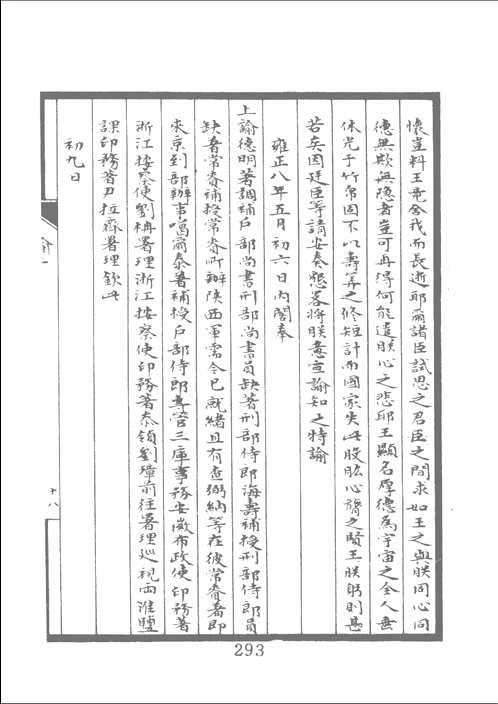 懷豈料王竟舍我而長逝耶爾諸臣試思之君臣之間求如王之與朕同心同
德無欺無隱者豈可再得何能遣朕心之悲耶王顯名厚德為宇宙之全人垂
休光于竹帛固不以壽算之修短計而國家失此股肱心膂之賢王朕躬則甚
若矣因廷臣等請安奏懇畧將朕意宣諭知之特諭
雍正八年五月初六日內閣奉
上諭德明著調補戶部尚書刑部尚書員缺著刑部侍郎海壽補授刑部侍郎員
缺著常賚補授常賚所辦陝西軍需今已就緒且有查弼納等在彼常賚著即
來京到部辦事噶爾泰著補授戶部侍郎專管三庫事務安徽布政使印務著
浙江按察使劉柟署理浙江按察使印務著泰領劉璋前往署理巡視兩淮鹽
課印務著尹拉齊署理欽此
初九日
諭
十八
293